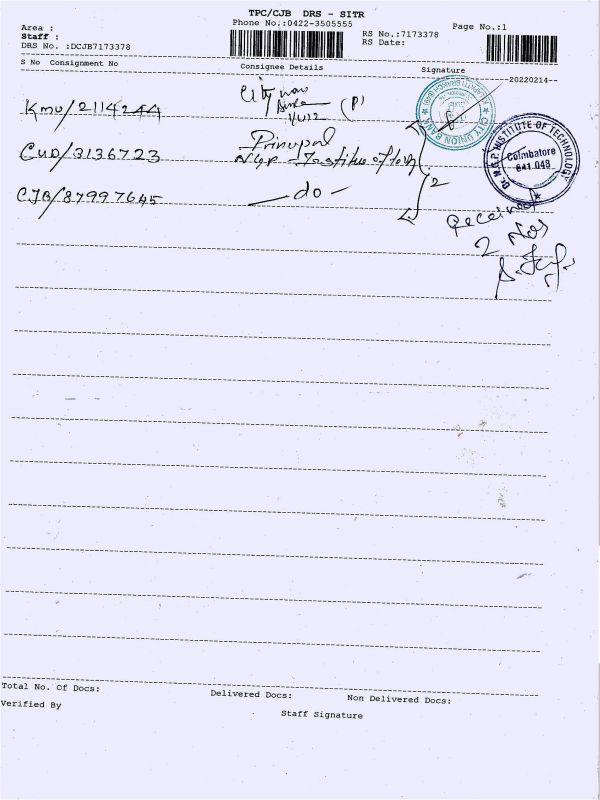 TPC/CJB DRS - SITR
Area : Phone No.:0422-3505555 Page No.:1
Staff : RS No.:7173378
DRS No. :DCJB7173378 RS Date:
S No Consignment No Consignee Details Signature
--20220214--
City (P)
KMU/2114244
Principal
CUD/3136723 NGP Institute of
CJB/87997645 — do — 2
CITY UNION BANK
Dr. N.G.P. INSTITUTE OF TECHNOLOGY
Coimbatore
641 048
Received
2 Nos
Total No. Of Docs: Delivered Docs: Non Delivered Docs:
Verified By Staff Signature